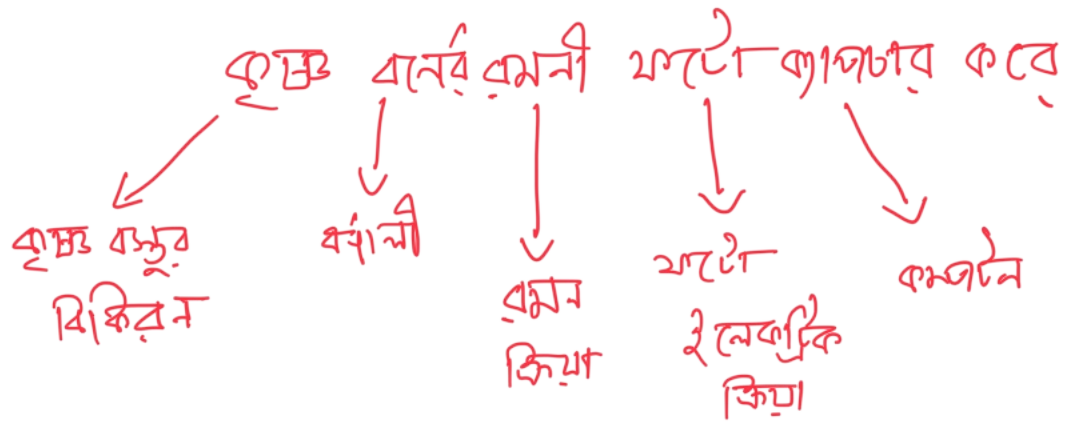 কৃষ্ণ বর্নের রমনী ফটো ক্যাপচার করে
কৃষ্ণ বস্তুর
বিকিরন
বর্ণালী
রমন
ক্রিয়া
ফটো
ইলেকট্রিক
ক্রিয়া
কম্পটন